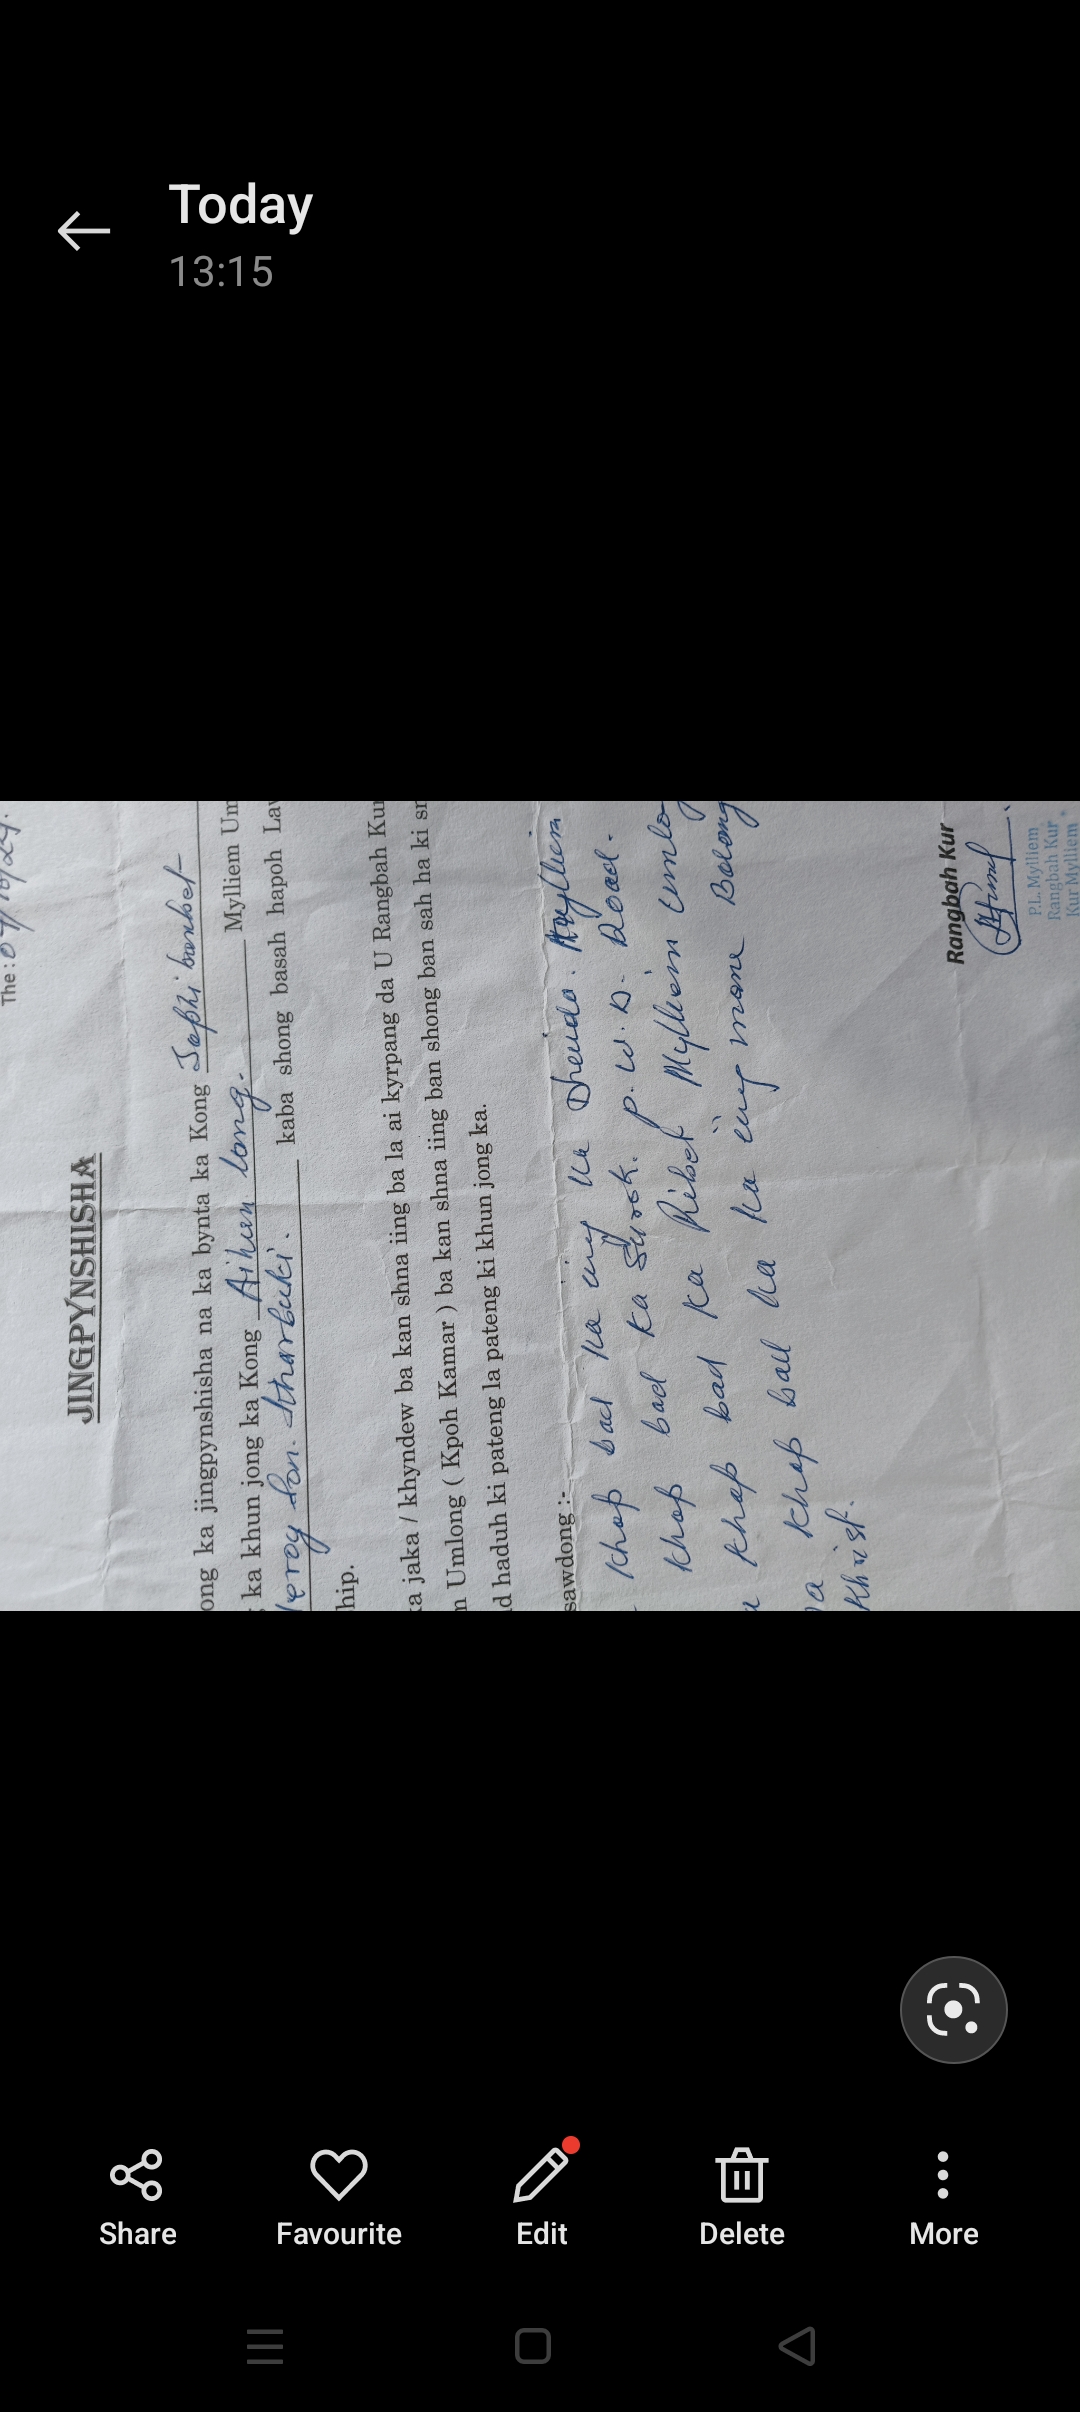 Today
13:15
The : 07/10/24.
JINGPYNSHISHA
ong ka jingpynshisha na ka bynta ka Kong
ka khun jong ka Kong Aihun long. Mylliem Um
kaba shong basah hapoh La
hip.
a jaka / khyndew ba kan shna iing ba la ai kyrpang da U Rangbah Ku
Umlong ( Kpoh Kamar ) ba kan shna iing ban shong ban sah ha ki sn
d haduh ki pateng la pateng ki khun jong ka.
sawdong :-
khap bad ka ing ka Mylliem
khap bad ka Surok. P. W. D. Road.
khap bad ka Ribet Mylliem umlo
a khap bad ka ka ing mane Balang
Khrist.
Rangbah Kur
P.L. Mylliem
Rangbah Kur
Kur Mylliem
Share
Favourite
Edit
Delete
More